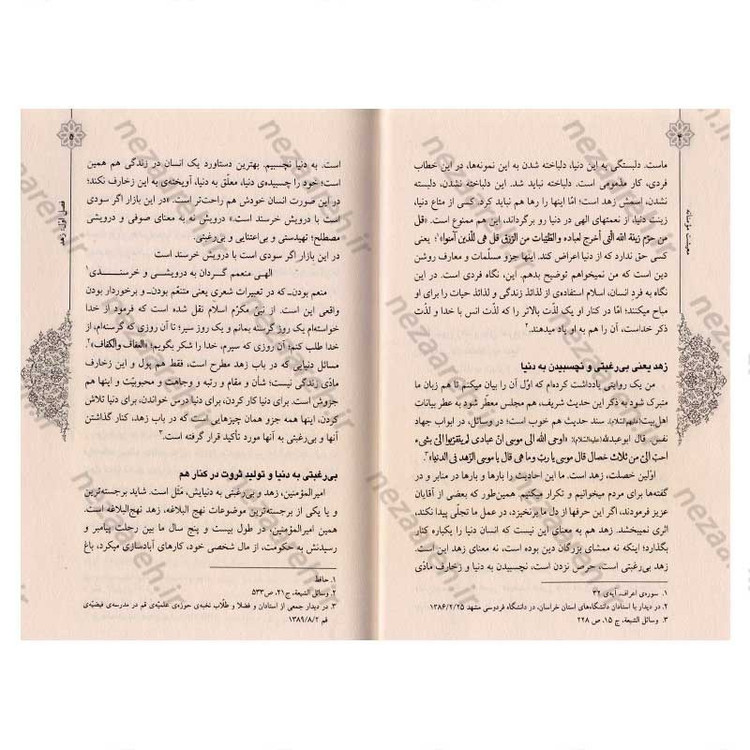 معیشت مؤمنانه
ماست. دلبستگی به این دنیا، دلباخته شدن به این نمونه‌ها، در این خطاب
فردی، کار مذمومی است. دلباخته نباید شد. این دلباخته نشدن، دلبسته
نشدن، اسمش زهد است؛ امّا اینها را رها هم نباید کرد. کسی از متاع دنیا،
زینت دنیا، از نعمتهای الهی در دنیا رو برگرداند، این هم ممنوع است. «قل
من حرّم زینة اللّه الّتی أخرج لعباده والطّیّبات من الرّزق قل هی للّذین آمنوا»؛۱ یعنی
کسی حق ندارد که از دنیا اعراض کند. اینها جزو مسلّمات و معارف روشن
دین است که من نمیخواهم توضیح بدهم. این، نگاه فردی است. در این
نگاه به فردِ انسان، اسلام استفاده‌ی از لذائذ زندگی و لذائذ حیات را برای او
مباح میکند؛ امّا در کنار او یک لذّت بالاتر را که لذّت انس با خدا و لذّت
ذکر خداست، آن را هم به او یاد میدهند.۲
زهد یعنی بی‌رغبتی و نچسبیدن به دنیا
من یک روایتی یادداشت کرده‌ام که اوّل آن را بیان میکنم تا هم زبان ما
متبرک شود به ذکر این حدیث شریف، هم مجلس معطّر شود به عطر بیانات
اهل‌بیت(علیهم‌السّلام). سند حدیث هم خوب است؛ در وسائل، در ابواب جهاد
نفس. قال ابوعبدالله(علیه‌السّلام): «اوحی اللّه الی موسی انّ عبادی لم یتقرّبوا الیّ بشیء
احبّ الیّ من ثلاث خصال قال موسی یا ربّ وما هی قال یا موسی الزّهد فی الدنیا».۳
اوّلین خصلت، زهد است. ما این احادیث را بارها و بارها در منابر و
گفته‌ها برای مردم میخوانیم و تکرار میکنیم. همین‌طور که بعضی از آقایان
عزیز فرمودند، اگر این حرفها از دل ما برنخیزد، در عمل ما تجلّی پیدا نکند،
اثری نمیبخشد. زهد هم به معنای این نیست که انسان دنیا را یکباره کنار
بگذارد؛ اینکه نه ممشای بزرگان دین بوده است، نه معنای زهد این است.
زهد بی‌رغبتی است، حرص نزدن است، نچسبیدن به دنیا و زخارف مادّی
۱. سوره‌ی اعراف، آیه‌ی ۳۲
۲. در دیدار با استادان دانشگاه‌های استان خراسان، در دانشگاه فردوسی مشهد ۱۳۸۶/۲/۲۵
۳. وسائل الشیعة، ج ۱۵، ص ۲۲۸
۵
فصل اوّل: زهد
است. به دنیا نچسبیم. بهترین دستاورد یک انسان در زندگی هم همین
است؛ خود را چسبیده‌ی دنیا، معلّق به دنیا، آویخته‌ی به این زخارف نکند؛
در این صورت انسان خودش هم راحت‌تر است. «در این بازار اگر سودی
است با درویش خرسند است» درویش نه به معنای صوفی و درویشی
مصطلح؛ تهیدستی و بی‌اعتنایی و بی‌رغبتی.
در این بازار اگر سودی است با درویش خرسند است
الهی منعمم گردان به درویشی و خرسندی۱
منعم بودن‌ـ که در تعبیرات شعری یعنی متنعّم بودن‌ـ و برخوردار بودن
واقعی این است. از نبیّ مکرّم اسلام نقل شده است که فرمود از خدا
خواسته‌ام یک روز گرسنه بمانم و یک روز سیر؛ تا آن روزی که گرسنه‌ام، از
خدا طلب کنم؛ آن روزی که سیرم، خدا را شکر بگویم؛ «العفاف والکفاف».۲
مسائل دنیایی که در باب زهد مطرح است، فقط هم پول و این زخارف
مادّی زندگی نیست؛ شأن و مقام و رتبه و وجاهت و محبوبیّت و اینها هم
جزوش است. برای دنیا کار کردن، برای دنیا درس خواندن، برای دنیا تلاش
کردن، اینها همه جزو همان چیزهایی است که در باب زهد، کنار گذاشتن
آنها و بی‌رغبتی به آنها مورد تأکید قرار گرفته است.۳
بی‌رغبتی به دنیا و تولید ثروت در کنار هم
امیرالمؤمنین، زهد و بی‌رغبتی به دنیایش، مَثَل است. شاید برجسته‌ترین
و یا یکی از برجسته‌ترین موضوعات نهج البلاغه، زهد نهج‌البلاغه است.
همین امیرالمؤمنین، در طول بیست و پنج سال ما بین رحلت پیامبر و
رسیدنش به حکومت، از مال شخصی خود، کارهای آبادسازی میکرد، باغ
۱. حافظ
۲. وسائل الشیعة، ج۲۱، ص۵۳۳
۳. در دیدار جمعی از استادان و فضلا و طلّاب نخبه‌ی حوزه‌ی علمیّه‌ی قم در مدرسه‌ی فیضیّه‌ی
قم ۱۳۸۹/۸/۲
nezaareh.ir